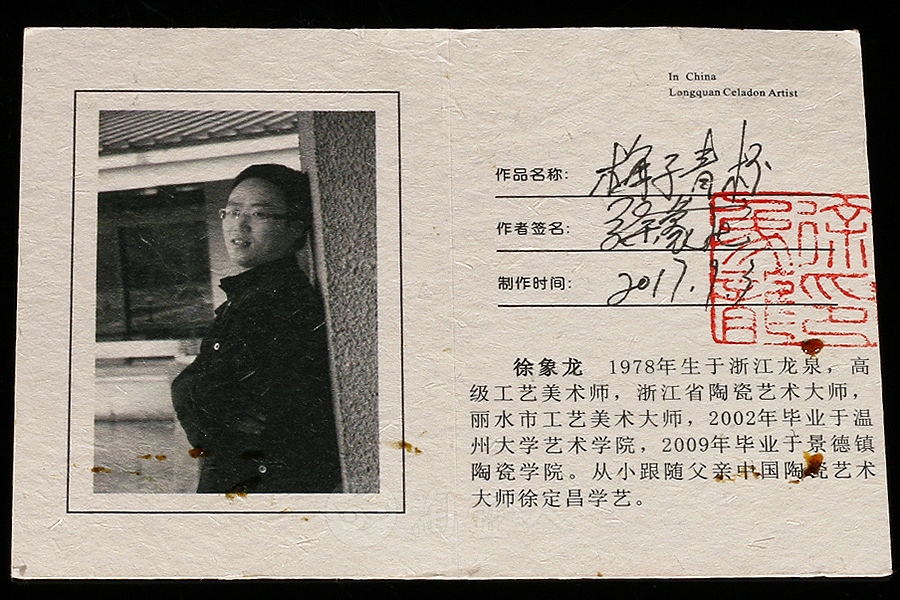 In China
Longquan Celadon Artist
作品名称: 梅子青杯
作者签名: 徐象龙
制作时间: 2017.9.3
徐象龙 1978年生于浙江龙泉，高
级工艺美术师，浙江省陶瓷艺术大师，
丽水市工艺美术大师，2002年毕业于温
州大学艺术学院，2009年毕业于景德镇
陶瓷学院。从小跟随父亲中国陶瓷艺术
大师徐定昌学艺。